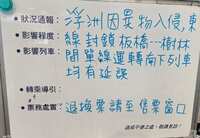 狀況通報：浮洲因異物入侵，東
影響程度：線封鎖板橋－樹林
影響列車：間單線運轉南下列車
均有延誤
轉乘導引：
票務處置：退換票請至售票窗口
造成不便之處，敬請見諒！